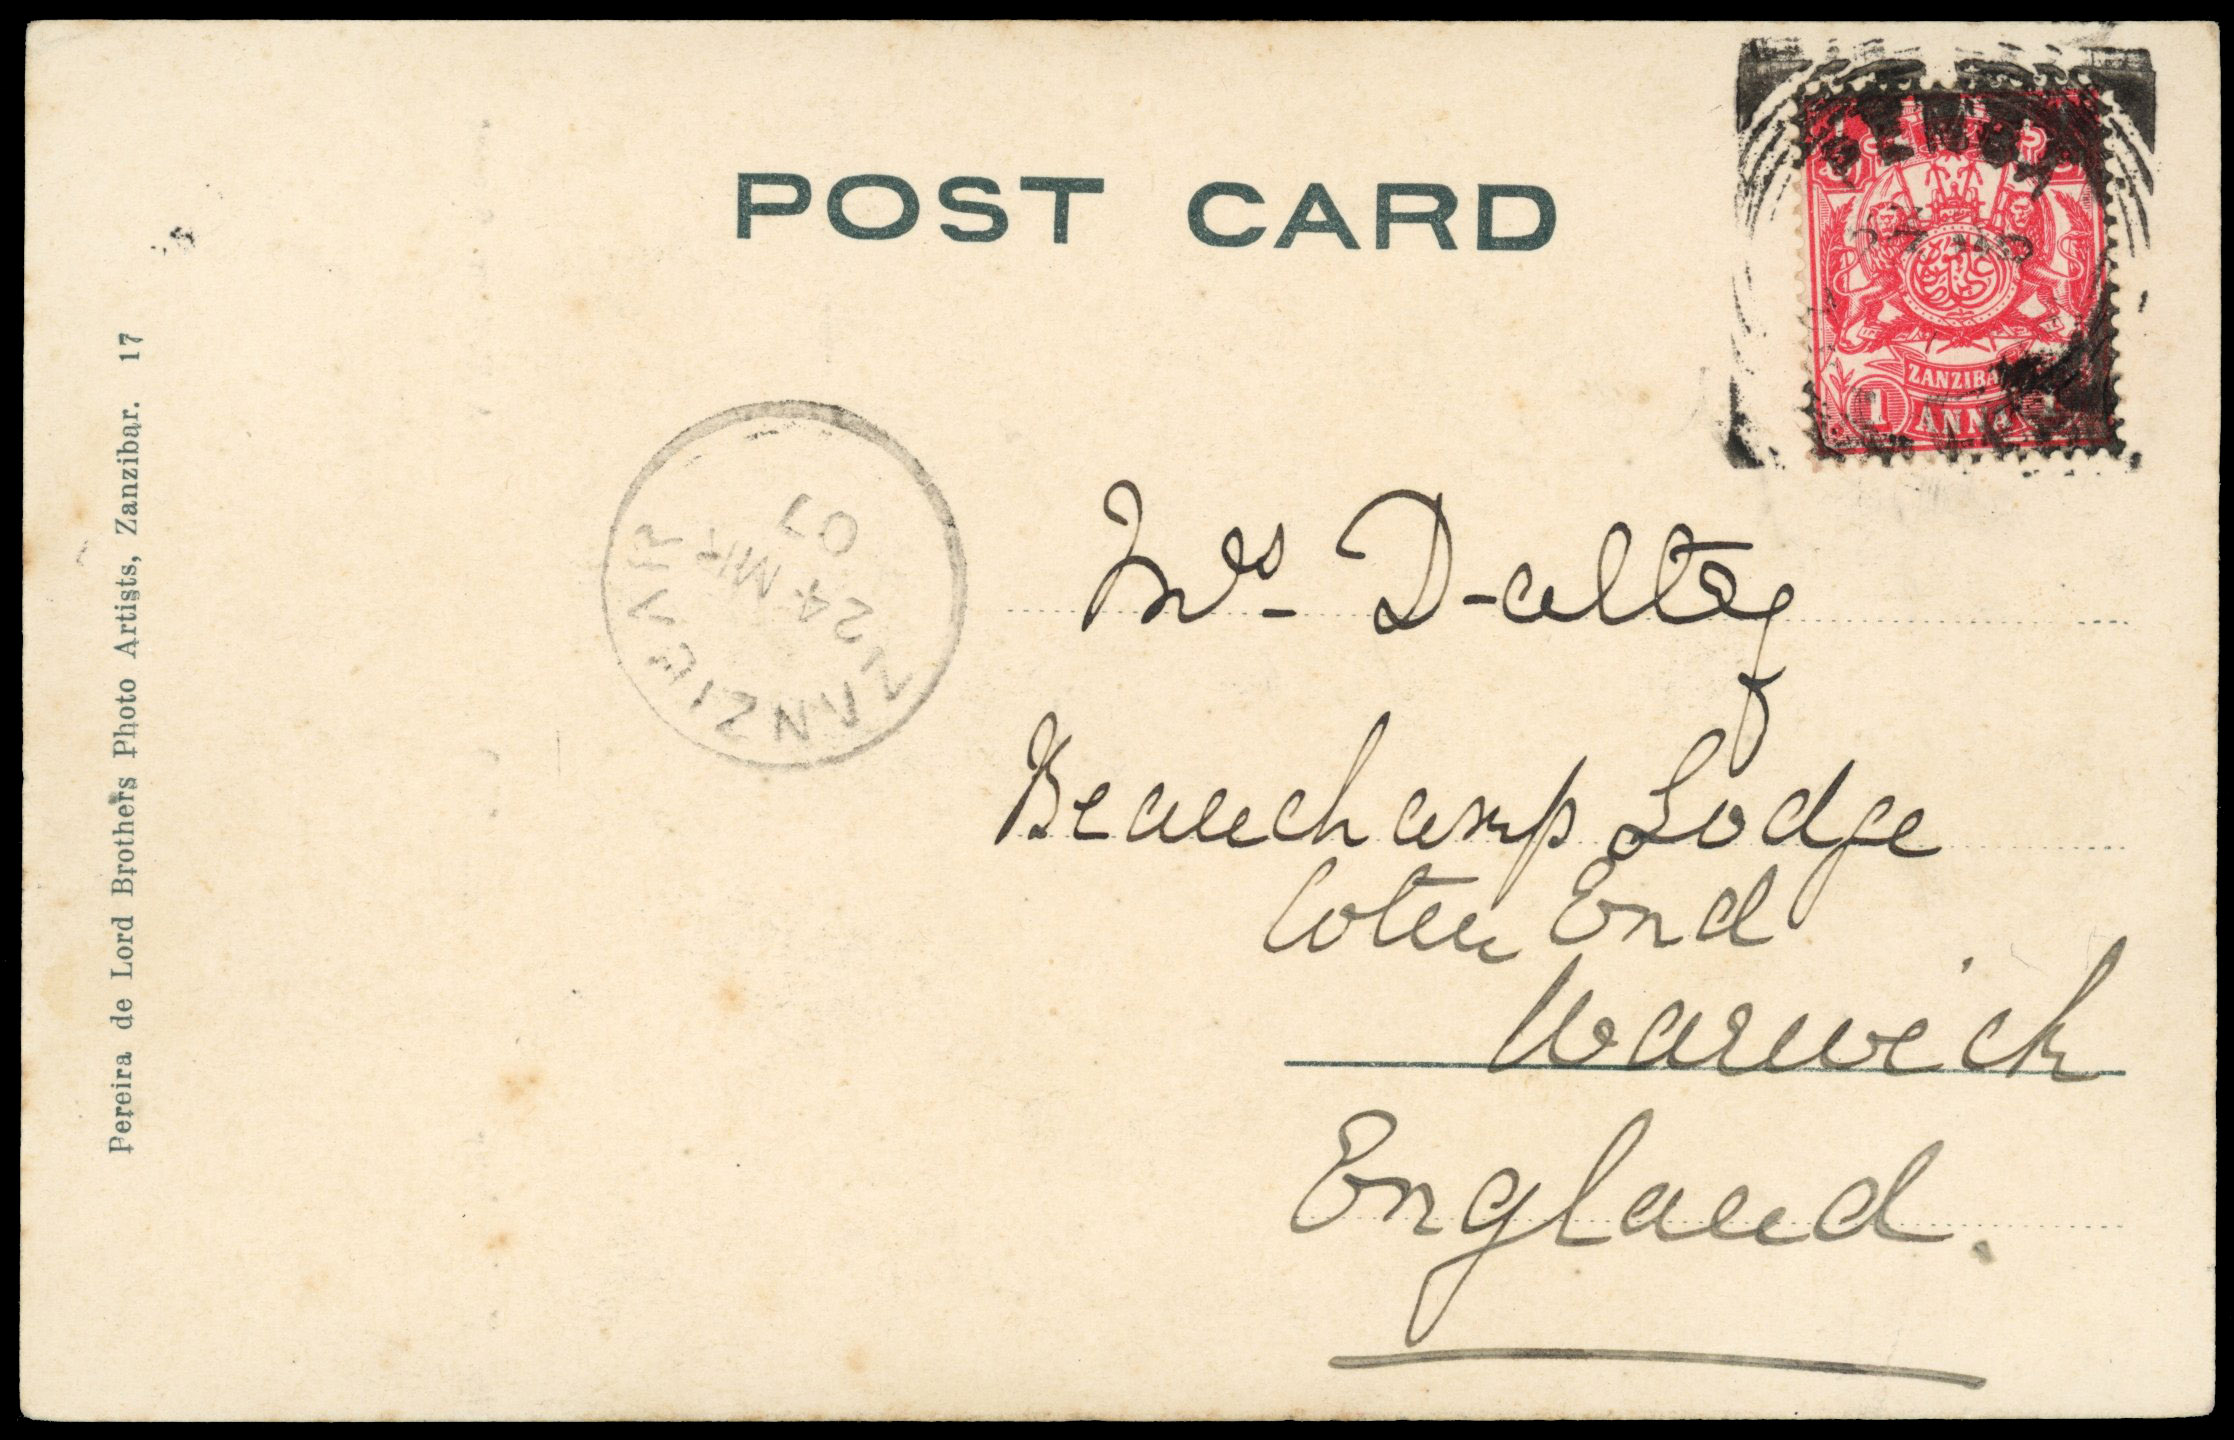 POST CARD
PEMBA
ZANZIBAR
1 ANNA
ZANZIBAR
24 MR
07
Mrs Dalty
Beauchamp Lodge
Coten End
Warwick
England.
Pereira de Lord Brothers Photo Artists, Zanzibar. 17